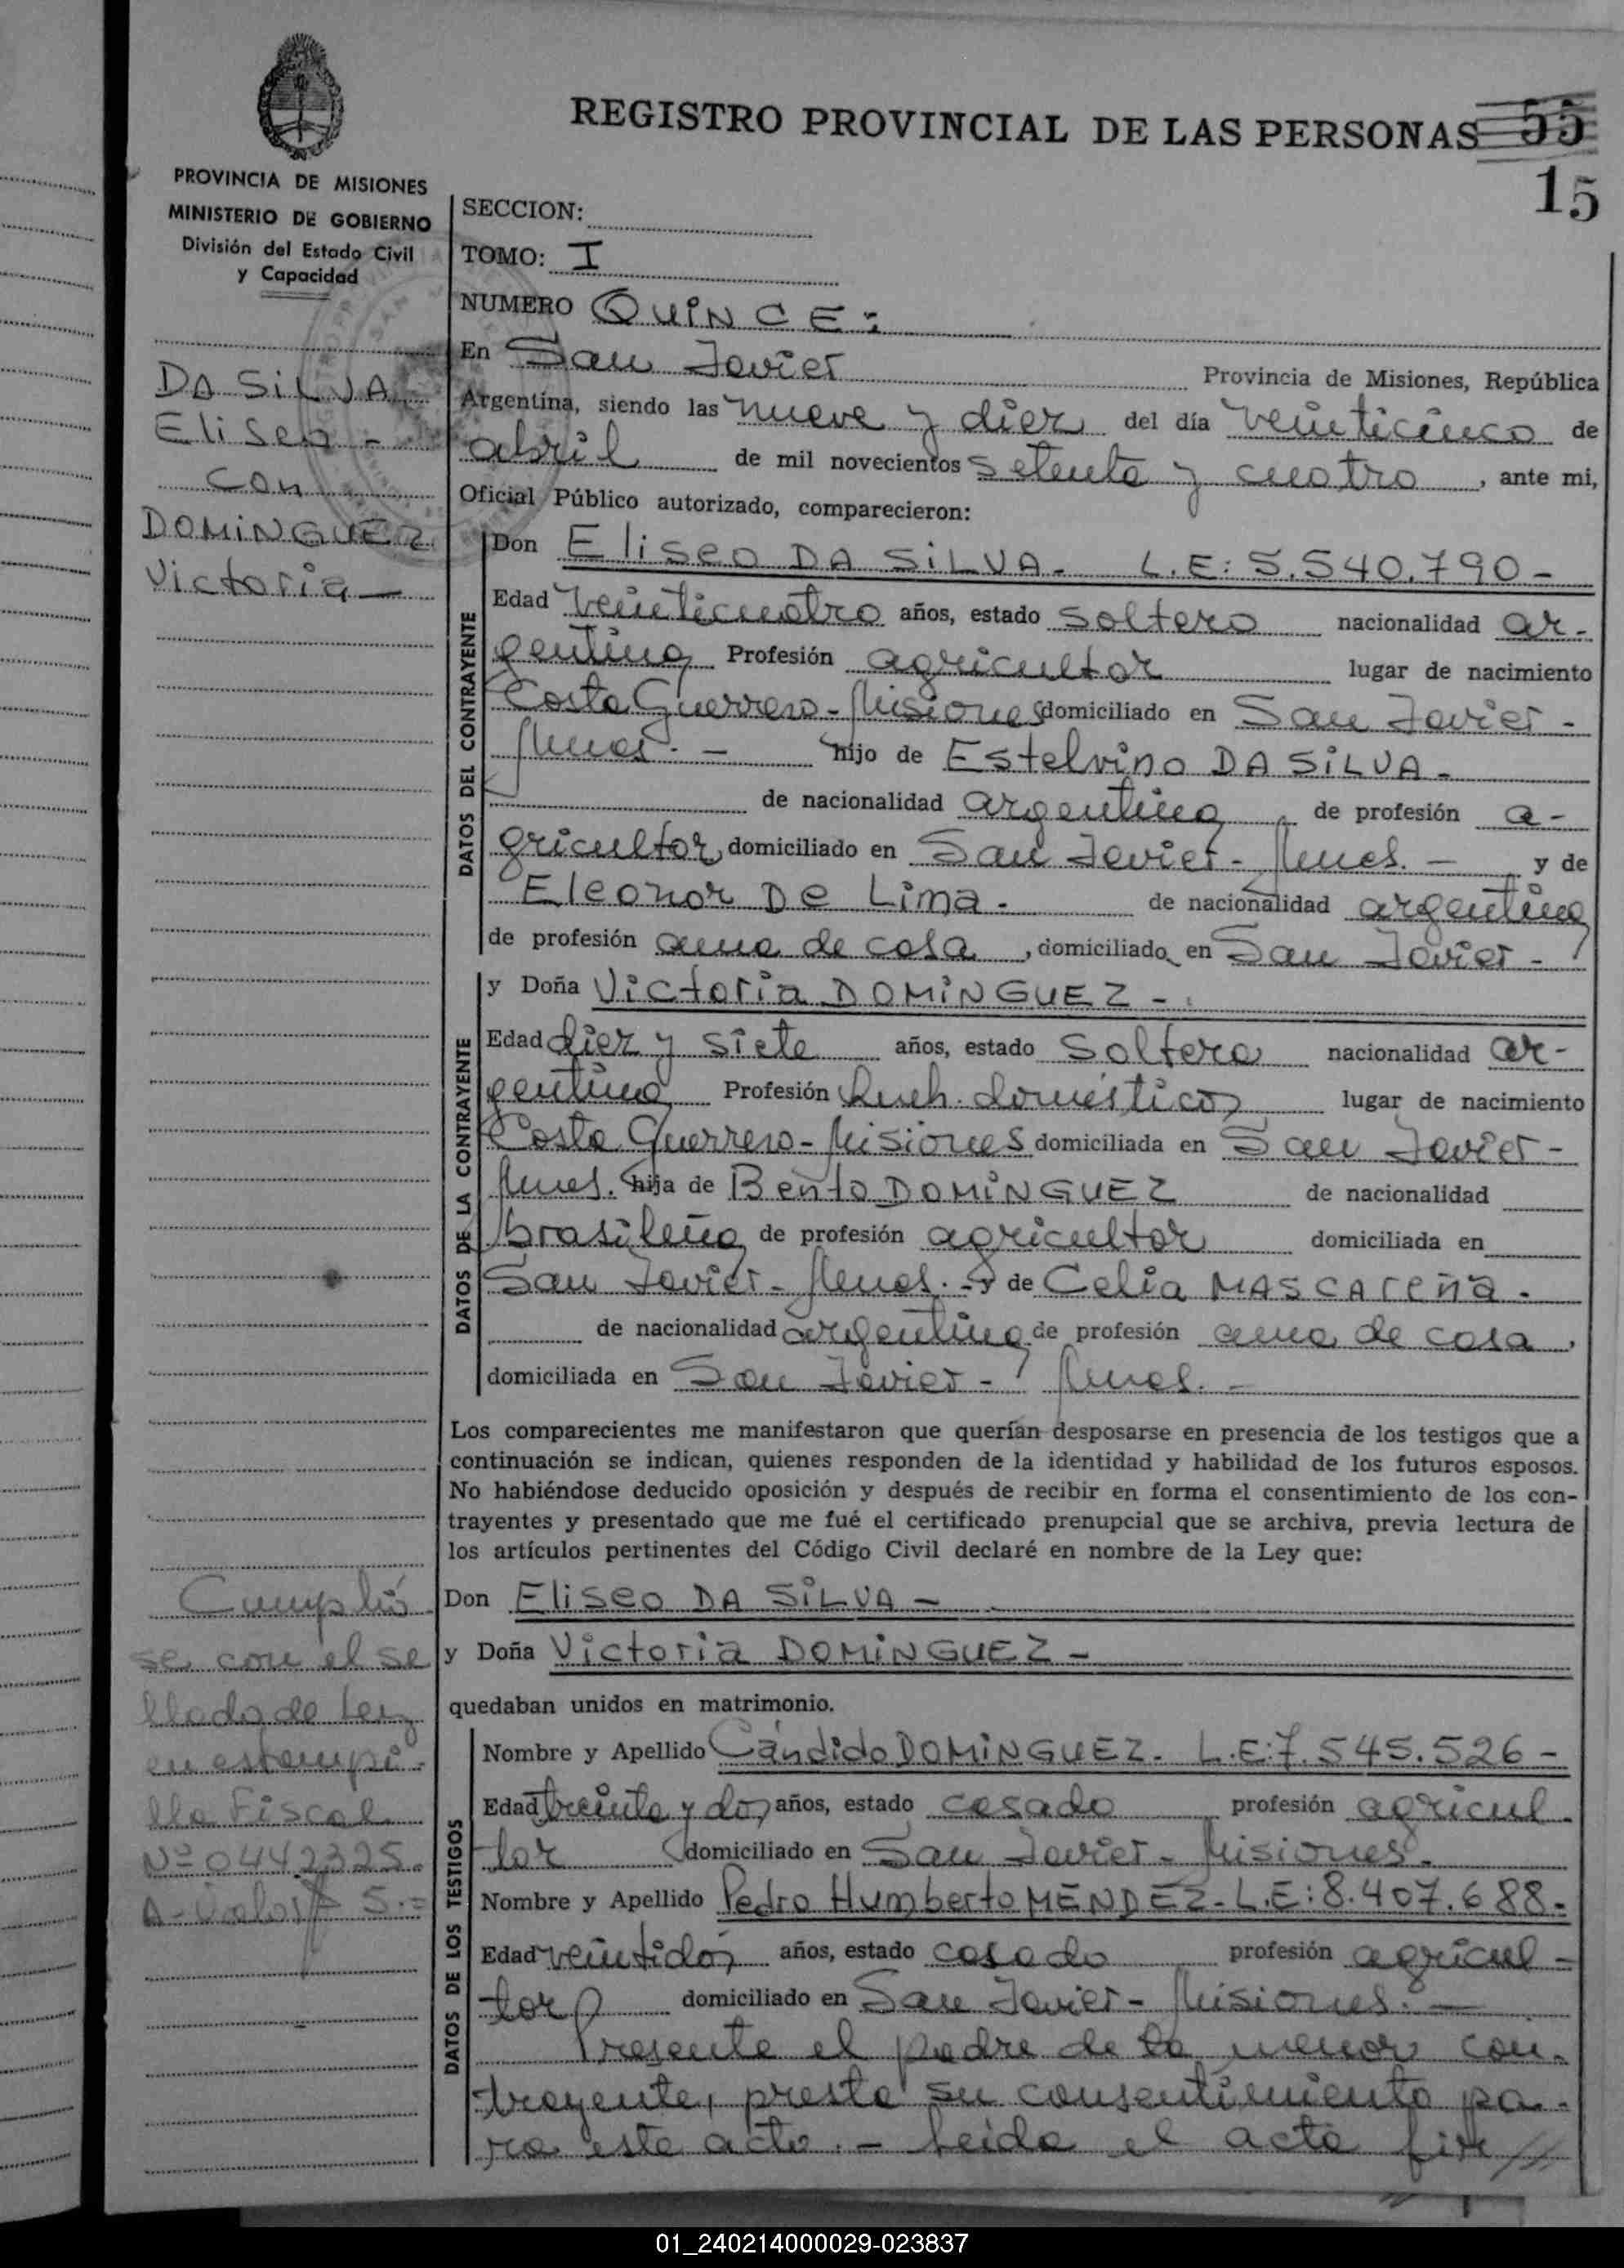 REGISTRO PROVINCIAL DE LAS PERSONAS 55
15
PROVINCIA DE MISIONES
MINISTERIO DE GOBIERNO
División del Estado Civil
y Capacidad
DA SILVA
Eliseo -
con
DOMINGUEZ
Victoria -
SECCION:
TOMO: I
NUMERO QUINCE:
En San Javier Provincia de Misiones, República
Argentina, siendo las nueve y diez del día veinticinco de
abril de mil novecientos setenta y cuatro, ante mi,
Oficial Público autorizado, comparecieron:
DATOS DEL CONTRAYENTE
Don Eliseo DA SILVA - L.E: 5.540.790 -
Edad veinticuatro años, estado soltero nacionalidad ar-
gentina Profesión agricultor lugar de nacimiento
Costa Guerrero - Misiones domiciliado en San Javier -
Mnes. - hijo de Estelvino DA SILVA -
de nacionalidad argentina de profesión a-
gricultor domiciliado en San Javier - Mnes. - y de
Eleonor De Lima - de nacionalidad argentina
de profesión ama de casa, domiciliado en San Javier -
DATOS DE LA CONTRAYENTE
y Doña Victoria DOMINGUEZ -
Edad diez y siete años, estado soltera nacionalidad ar-
gentina Profesión Queh. domésticos lugar de nacimiento
Costa Guerrero - Misiones domiciliada en San Javier -
Mnes. hija de Bento DOMINGUEZ de nacionalidad
brasileña de profesión agricultor domiciliada en
San Javier - Mnes. - y de Celia MASCAREÑA -
de nacionalidad argentina de profesión ama de casa,
domiciliada en San Javier - Mnes. -
Los comparecientes me manifestaron que querían desposarse en presencia de los testigos que a
continuación se indican, quienes responden de la identidad y habilidad de los futuros esposos.
No habiéndose deducido oposición y después de recibir en forma el consentimiento de los con-
trayentes y presentado que me fué el certificado prenupcial que se archiva, previa lectura de
los artículos pertinentes del Código Civil declaré en nombre de la Ley que:
Don Eliseo DA SILVA -
y Doña Victoria DOMINGUEZ -
quedaban unidos en matrimonio.
Cumplió
se con el se
llado de Ley
en estampi-
lla Fiscal
Nº 0442325.
A - Valor $ 5.=
DATOS DE LOS TESTIGOS
Nombre y Apellido Cándido DOMINGUEZ - L.E: 7.545.526 -
Edad treinta y dos años, estado casado profesión agricul-
tor domiciliado en San Javier - Misiones -
Nombre y Apellido Pedro Humberto MENDEZ - L.E: 8.407.688 -
Edad veintidós años, estado casado profesión agricul-
tor domiciliado en San Javier - Misiones. -
Presente el padre de la menor con-
trayente, presta su consentimiento pa-
ra este acto. - Leida el acta fir//
01_240214000029-023837